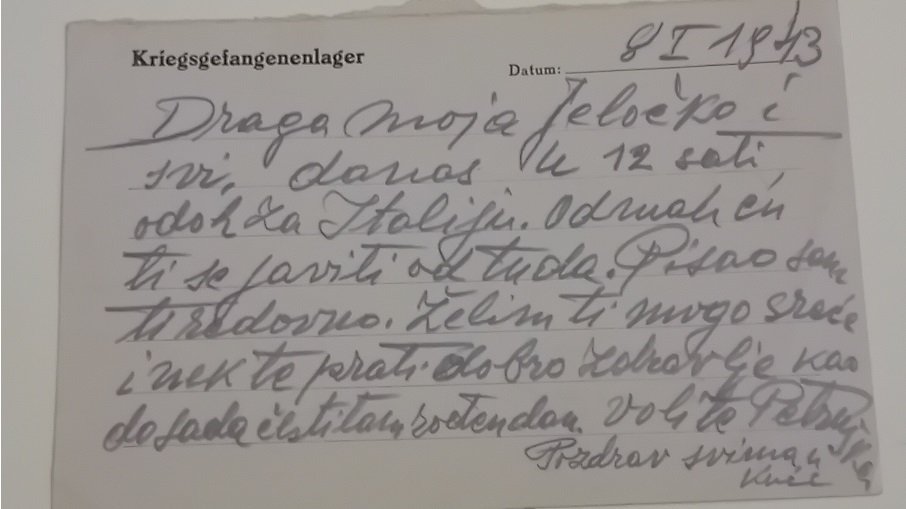 Kriegsgefangenenlager
Datum: 8 I 1943
Draga moja Jeločko i
svi, danas u 12 sati
odoh za Italiju. Odmah ću
ti se javiti od tuda. Pisao sam
ti redovno. Želim ti mogo sreće
i nek te prati dobro zdravlje kao
do sada čestitam rođendan. Voli te
Pozdrav svima u
kući